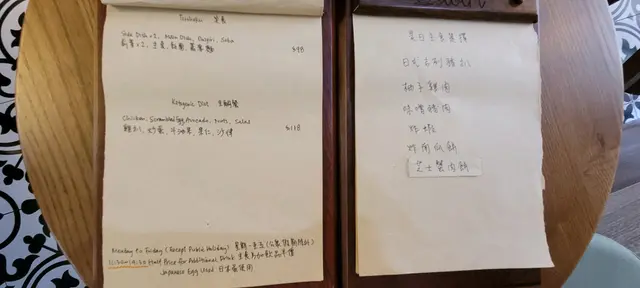 Teishoku 定食
Side Dish x 2, Main Dish, Onigiri, Soba
x 2, 主食, 飯團, 蕎麥麵 $98
Ketogenic Diet 生酮餐
Chicken, Scrambled Egg, Avocado, Nuts, Salad
雞扒, 炒蛋, 牛油果, 果仁, 沙律 $118
Monday to Friday (Except Public Holiday) 星期一至五 (公眾假期除外)
Half Price for Additional Drink 主食另加飲品半價
Japanese Egg Used 日本蛋使用
是日主食選擇
日式吉列豬扒
柚子雞肉
味噌豬肉
炸蝦
炸南瓜餅
芝士蟹肉餅